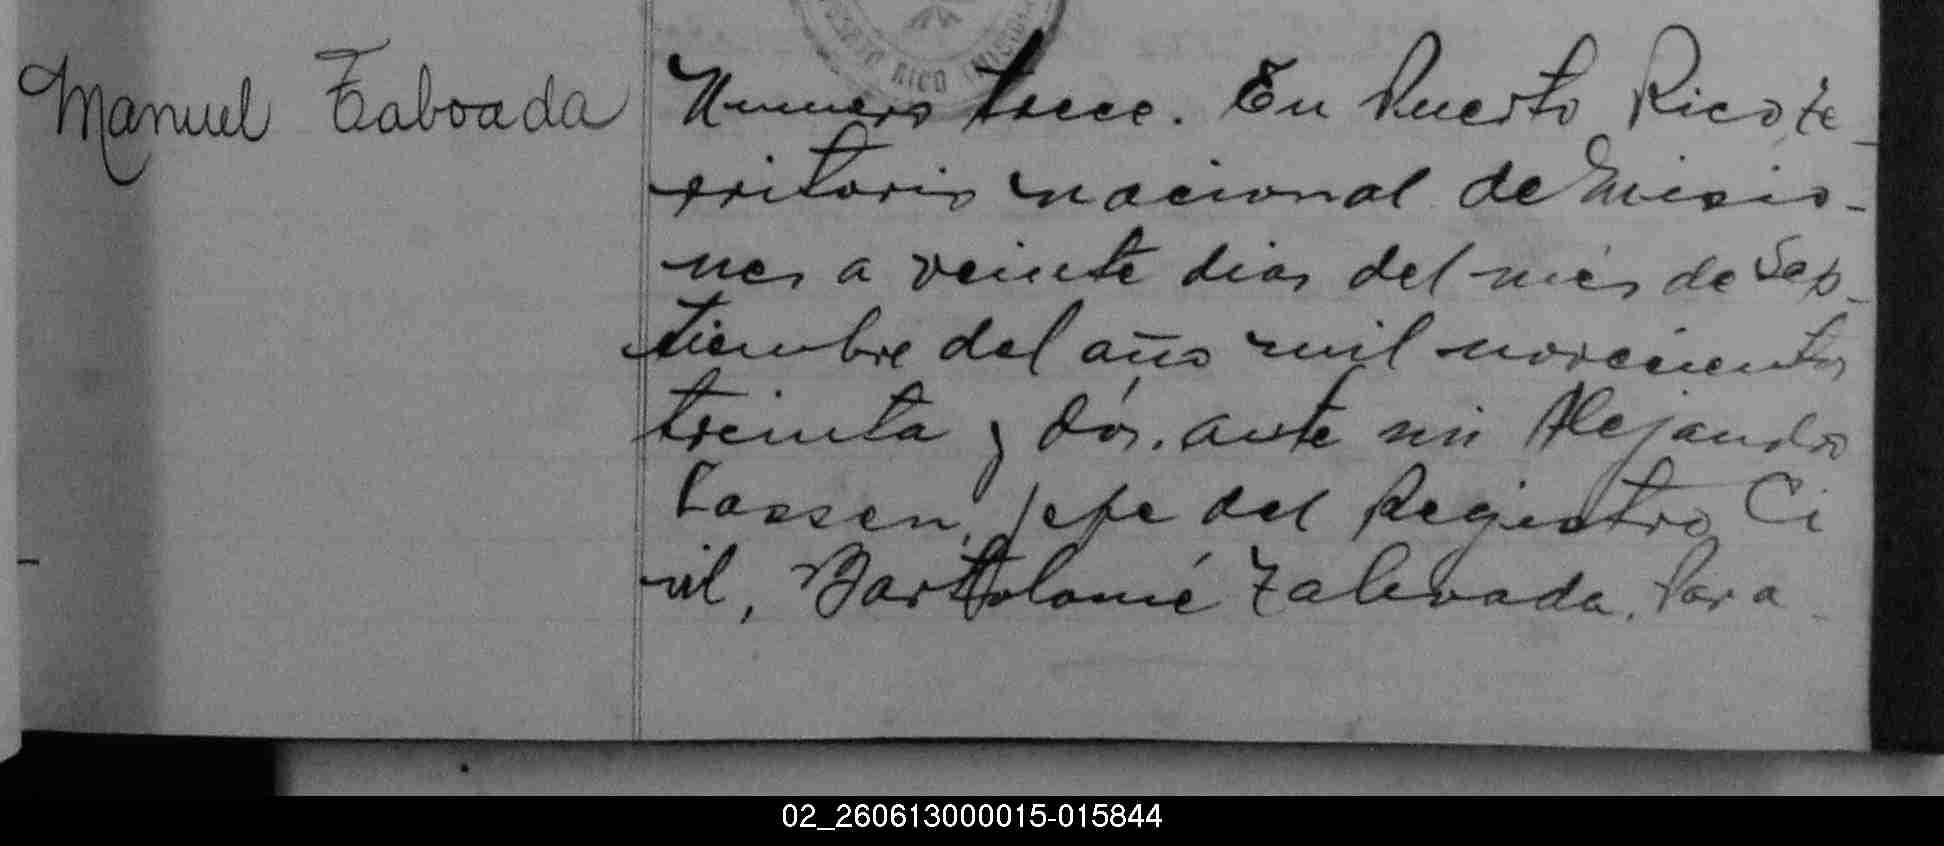 PUERTO RICO (MISIONES
Manuel Taboada
Numero trece. En Puerto Rico, te-
rritorio nacional de Misio-
nes a veinte dias del més de Sep-
tiembre del año mil novecientos
treinta y dós. ante mi Alejandro
Lassen, jefe del Registro Ci
vil, Bartolomé Zalevada, Para
02_260613000015-015844